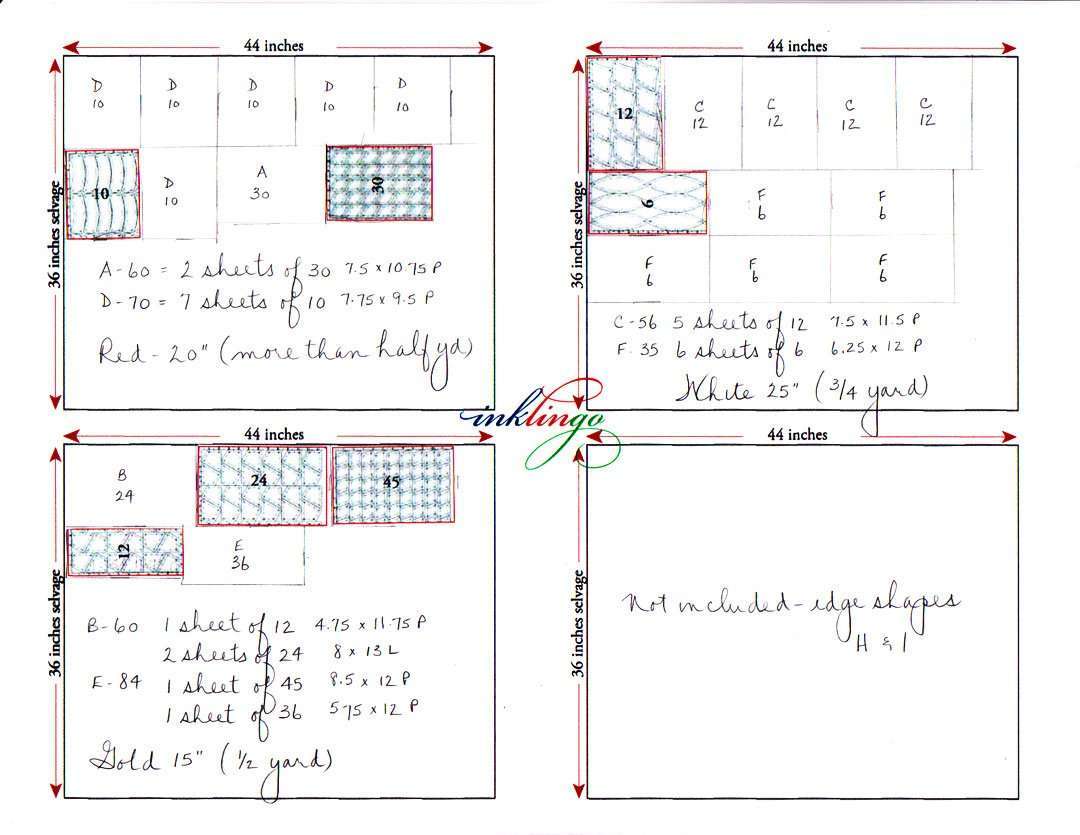 44 inches
36 inches selvage
D D D D D
10 10 10 10 10
10
D
10
A
30
30
A-60 = 2 sheets of 30 7.5 x 10.75 P
D-70 = 7 sheets of 10 7.75 x 9.5 P
Red - 20" (more than half yd)
44 inches
36 inches selvage
12
C C C C
12 12 12 12
6
F F
6 6
F F F
6 6 6
C-56 5 sheets of 12 7.5 x 11.5 P
F. 35 6 sheets of 6 6.25 x 12 P
White 25" (3/4 yard)
inklingo
44 inches
36 inches selvage
B
24
24
45
12
E
36
B-60 1 sheet of 12 4.75 x 11.75 P
2 sheets of 24 8 x 13 L
E-84 1 sheet of 45 8.5 x 12 P
1 sheet of 36 5.75 x 12 P
Gold 15" (1/2 yard)
44 inches
36 inches selvage
Not included - edge shapes
H & I